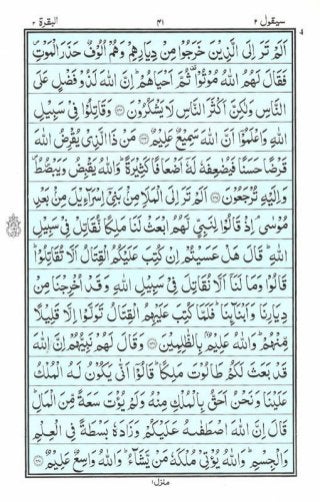 سيقول ٢ ٤١ البقرة ٢
اَلَمْ تَرَ اِلَى الَّذِيْنَ خَرَجُوْا مِنْ دِيَارِهِمْ وَهُمْ اُلُوْفٌ حَذَرَ الْمَوْتِ
فَقَالَ لَهُمُ اللهُ مُوْتُوْا ثُمَّ اَحْيَاهُمْ اِنَّ اللهَ لَذُوْ فَضْلٍ عَلَى
النَّاسِ وَلٰكِنَّ اَكْثَرَ النَّاسِ لَا يَشْكُرُوْنَ وَقَاتِلُوْا فِيْ سَبِيْلِ
اللهِ وَاعْلَمُوْٓا اَنَّ اللهَ سَمِيْعٌ عَلِيْمٌ مَنْ ذَا الَّذِيْ يُقْرِضُ اللهَ
قَرْضًا حَسَنًا فَيُضٰعِفَهٗ لَهٗٓ اَضْعَافًا كَثِيْرَةً وَاللهُ يَقْبِضُ وَيَبْصُۜطُ
وَاِلَيْهِ تُرْجَعُوْنَ اَلَمْ تَرَ اِلَى الْمَلَاِ مِنْ بَنِيْٓ اِسْرَآءِيْلَ مِنْ بَعْدِ
مُوْسٰى اِذْ قَالُوْا لِنَبِيٍّ لَّهُمُ ابْعَثْ لَنَا مَلِكًا نُّقَاتِلْ فِيْ سَبِيْلِ
اللهِ قَالَ هَلْ عَسَيْتُمْ اِنْ كُتِبَ عَلَيْكُمُ الْقِتَالُ اَلَّا تُقَاتِلُوْا
قَالُوْا وَمَا لَنَآ اَلَّا نُقَاتِلَ فِيْ سَبِيْلِ اللهِ وَقَدْ اُخْرِجْنَا مِنْ
دِيَارِنَا وَاَبْنَآئِنَا فَلَمَّا كُتِبَ عَلَيْهِمُ الْقِتَالُ تَوَلَّوْا اِلَّا قَلِيْلًا
مِّنْهُمْ وَاللهُ عَلِيْمٌ بِالظّٰلِمِيْنَ وَقَالَ لَهُمْ نَبِيُّهُمْ اِنَّ اللهَ
قَدْ بَعَثَ لَكُمْ طَالُوْتَ مَلِكًا قَالُوْٓا اَنّٰى يَكُوْنُ لَهُ الْمُلْكُ
عَلَيْنَا وَنَحْنُ اَحَقُّ بِالْمُلْكِ مِنْهُ وَلَمْ يُؤْتَ سَعَةً مِّنَ الْمَالِ
قَالَ اِنَّ اللهَ اصْطَفٰىهُ عَلَيْكُمْ وَزَادَهٗ بَسْطَةً فِي الْعِلْمِ
وَالْجِسْمِ وَاللهُ يُؤْتِيْ مُلْكَهٗ مَنْ يَّشَآءُ وَاللهُ وَاسِعٌ عَلِيْمٌ
منزل ١